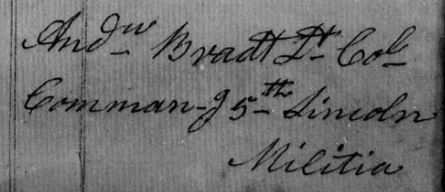 Andw Bradt Lt Col
Comman-g 5th Lincoln
Militia